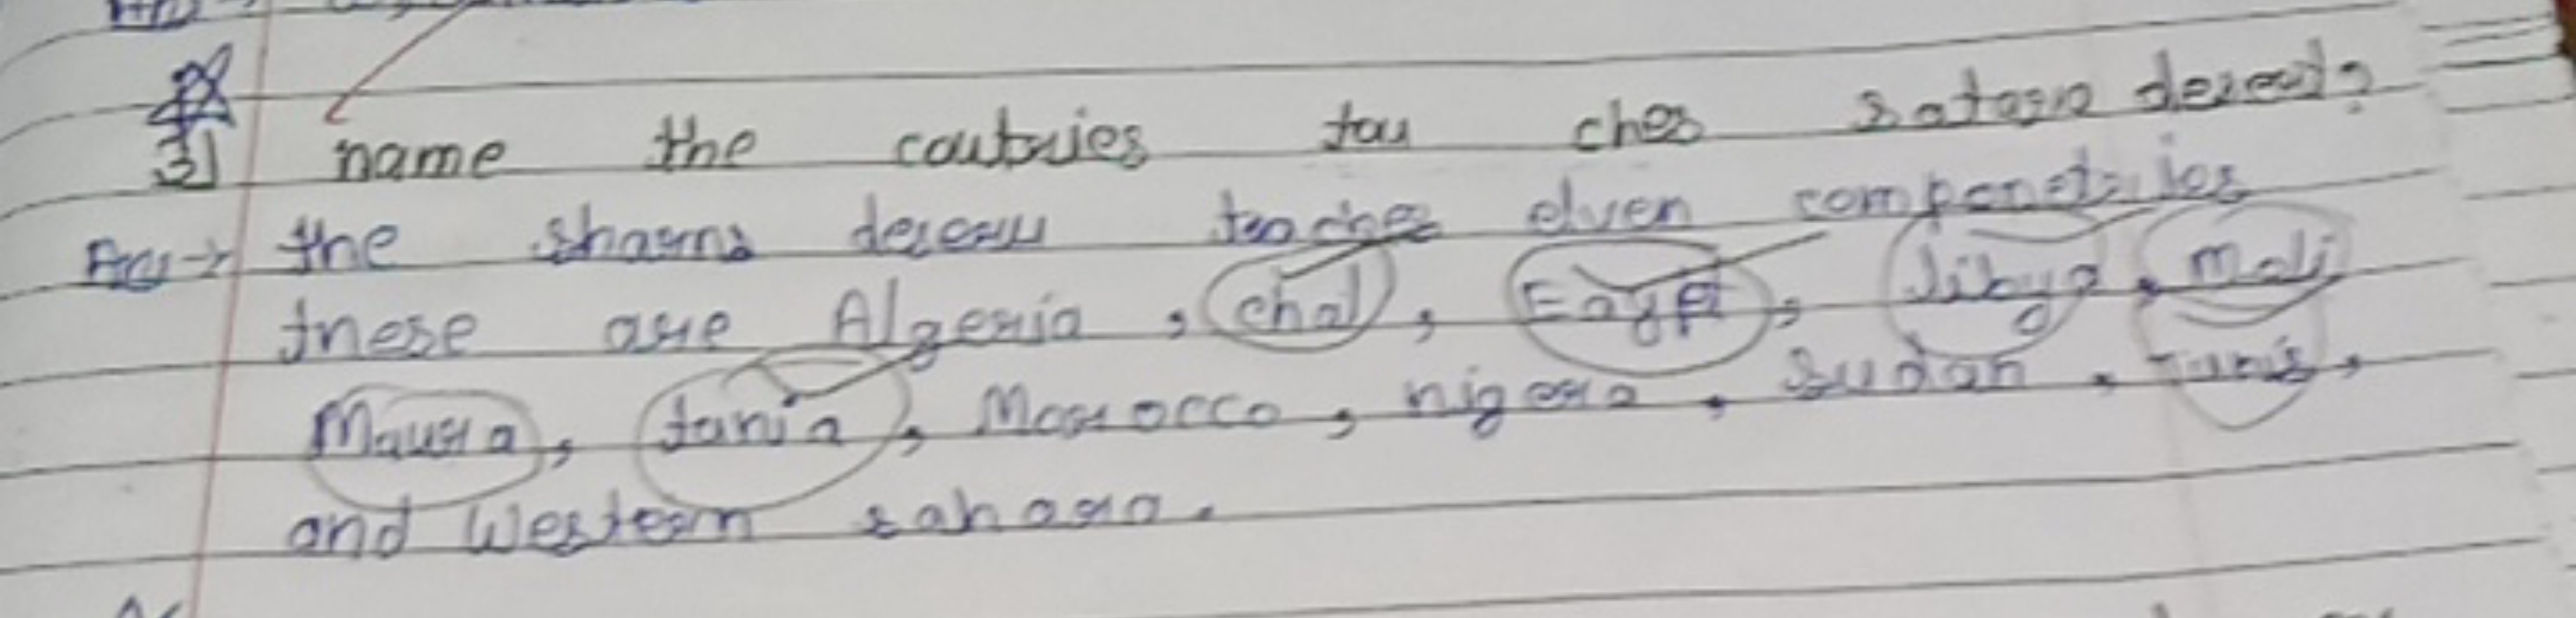 3) name the coutries tou ches satara desert?
Ans→ the sharns desert toches elven componetries
tnese are Algeria, chal, Eagpt, libya, Mali
Maura, tania, Morocco, nigera, Sudan, Tunis,
and Western sahara.